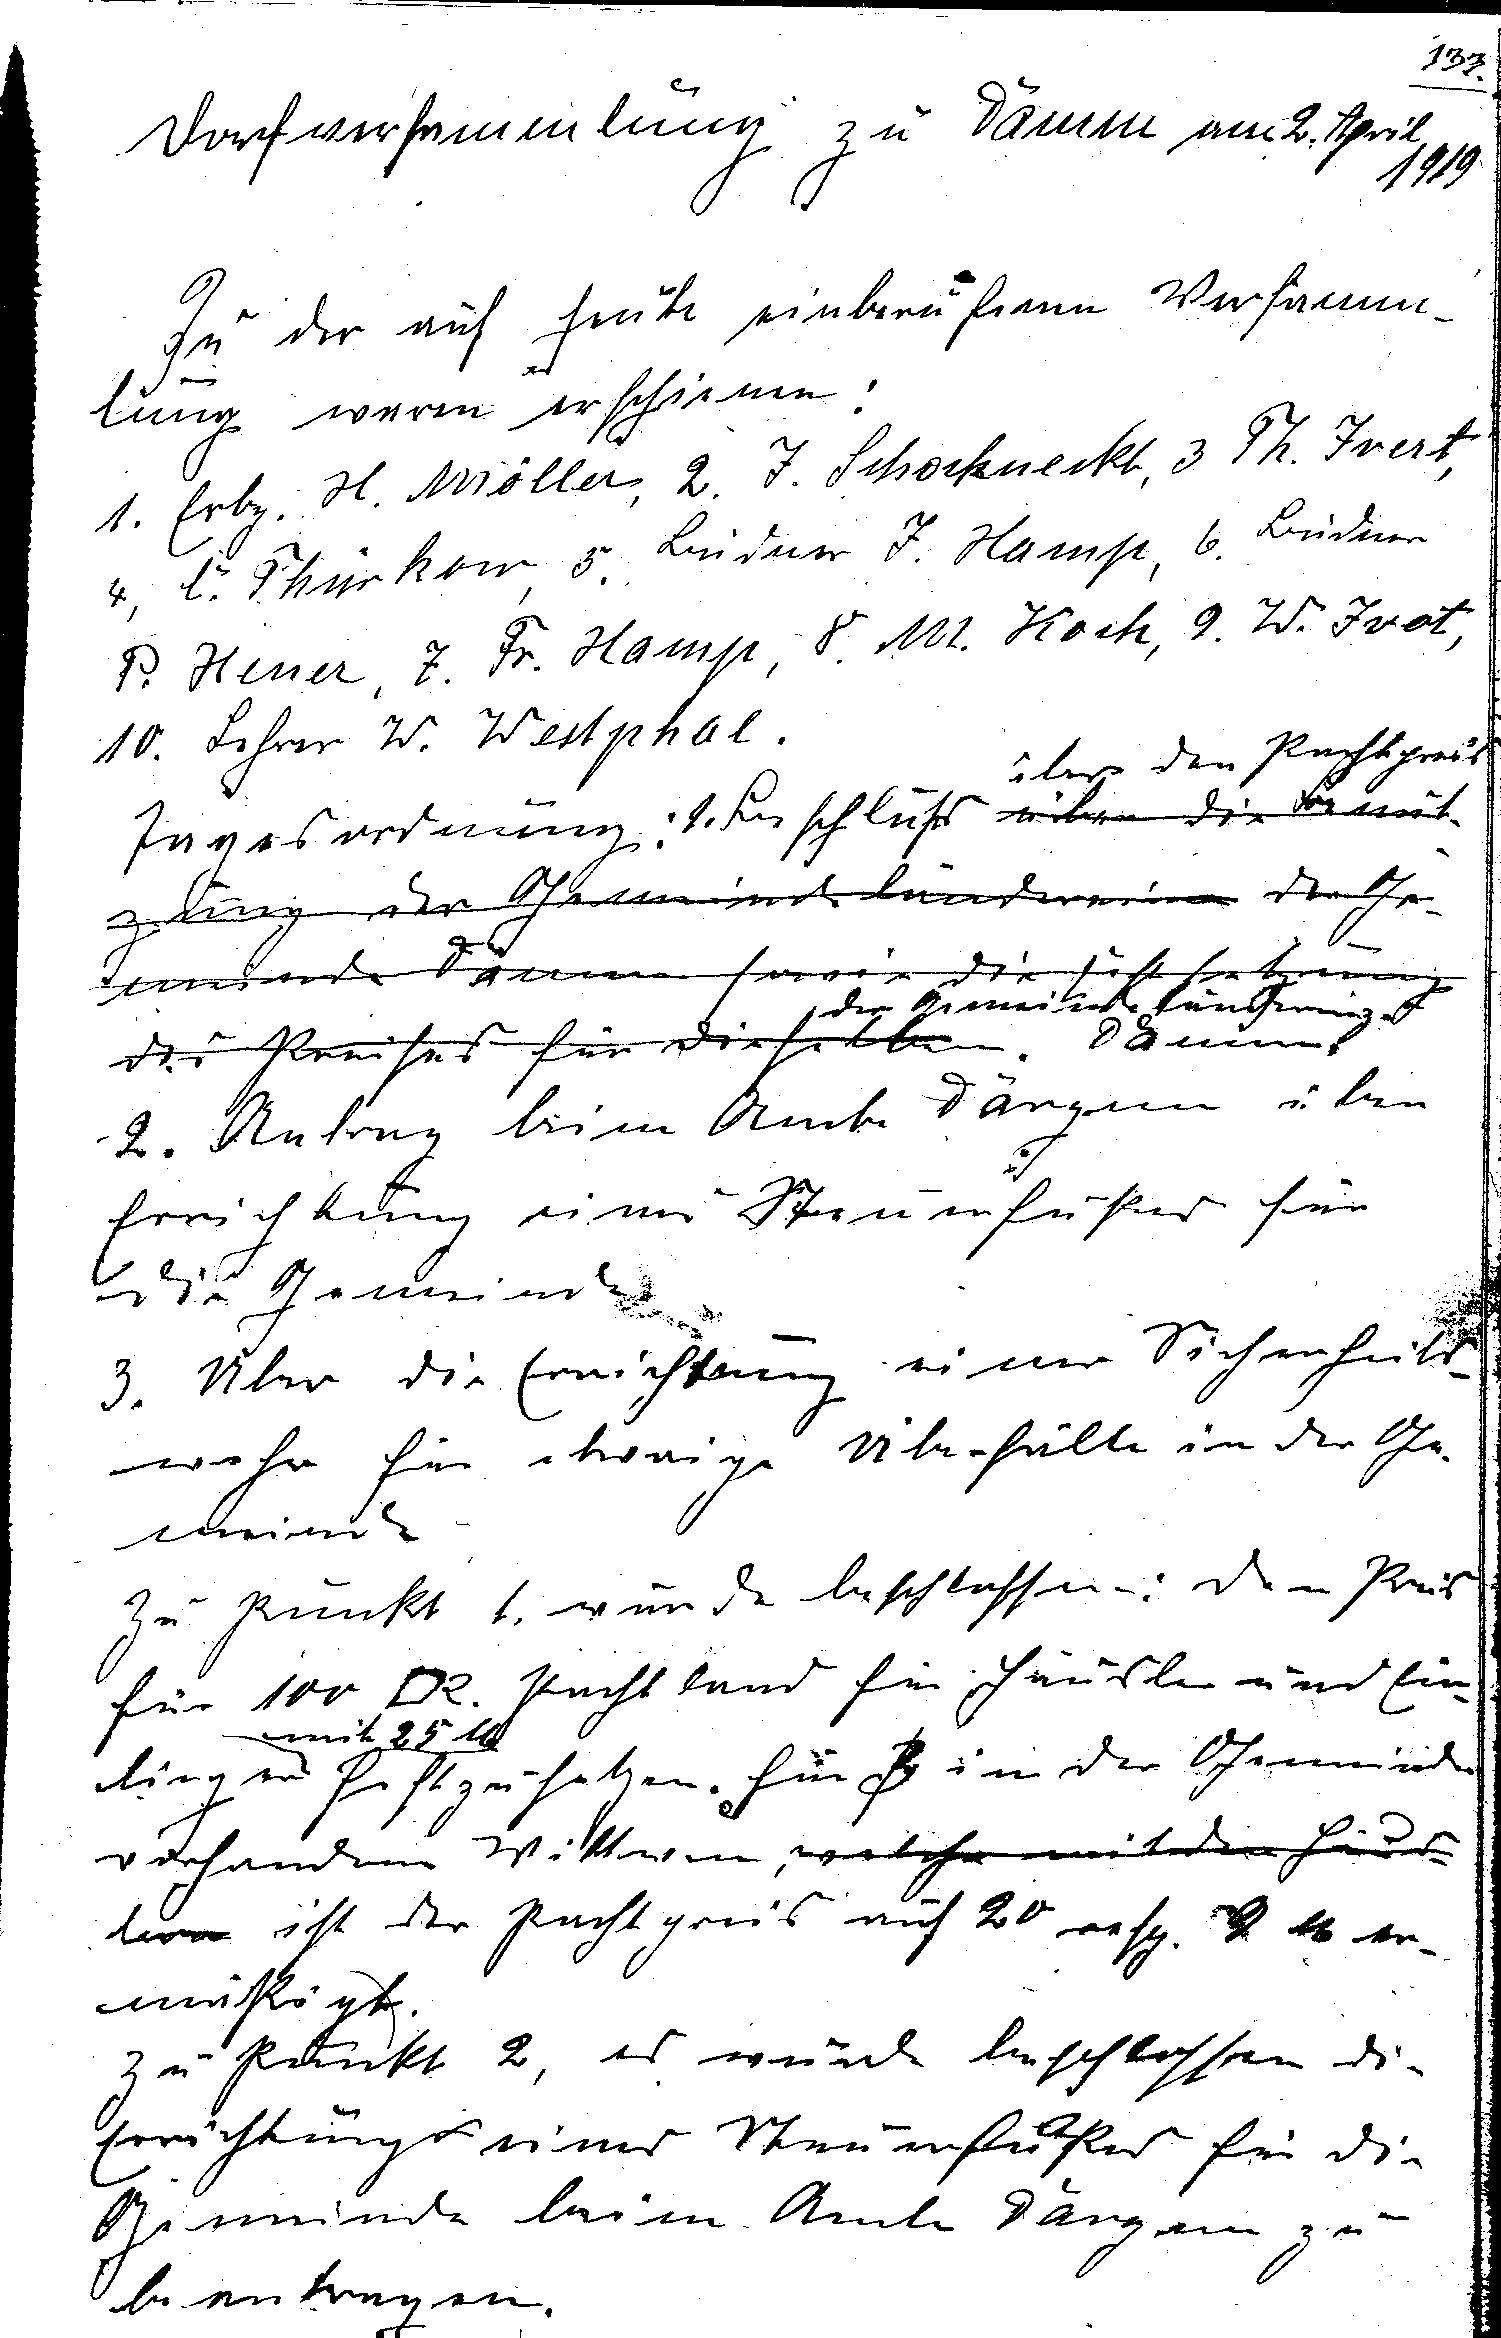 133.
Dorfversammlung zu Dämm am 2. April
1919
Zu der auf heute einberufenen Versamm-
lung waren erschienen:
1. Erbp. H. Möller, 2. J. Schocknecht, 3 Th. Ivert,
4, C. Thürkow, 5. Büdner J. Hamp, 6. Büdner
P. Heuer, 7. Fr. Hamp, 8. M. Koch, 9. W. Ivat,
10. Lehrer W. Westphal.
über den Pachtpreis
Tagesordnung: 1. Beschluß über die Benut-
zung der Gemeindeländereien der Ge-
meinde Dämm sowie die Festsetzung
der Gemeindeländereien
des Preises für dieselben. Dämm.
2. Antrag beim Amte Dargun über
Errichtung eines Steuerfußes für
die Gemeinde
3. Über die Errichtung einer Sicherheits-
wehr für etwaige Überfälle in der Ge-
meinde
Zu Punkt 1. wurde beschlossen: den Preis
für 100 □R. Pachtland für Häusler und Ein-
mit 25 M
lieger festzusetzen. Für in der Gemeinde
vorhandene Wittwen, welche mit den Häus-
lern ist der Pachtpreis auf 20 resp. M er-
mäßigt.
Zu Punkt 2, es wurde beschlossen die
Errichtung eines Steuerfußes für die
Gemeinde beim Amte Dargun zu
beantragen.